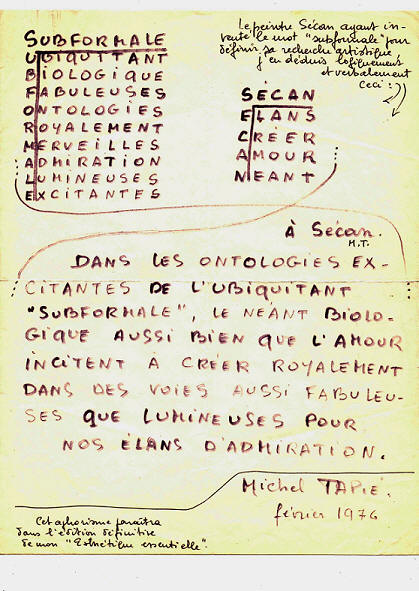 Le peintre Sécan ayant in-
venté le mot "subformale" pour
définir sa recherche artistique
j'en déduis logiquement
et verbalement
ceci :
SUBFORMALE
UBIQUITANT
BIOLOGIQUE
FABULEUSES
ONTOLOGIES
ROYALEMENT
MERVEILLES
ADMIRATION
LUMINEUSES
EXCITANTES
SÉCAN
ELANS
CRÉER
AMOUR
NEANT
À Sécan.
M.T.
DANS LES ONTOLOGIES EX-
CITANTES DE L'UBIQUITANT
"SUBFORMALE", LE NÉANT BIOLO-
GIQUE AUSSI BIEN QUE L'AMOUR
INCITENT À CRÉER ROYALEMENT
DANS DES VOIES AUSSI FABULEU-
SES QUE LUMINEUSES POUR
NOS ÉLANS D'ADMIRATION.
Michel TAPIÉ.
février 1976
Cet aphorisme paraîtra
dans l'édition définitive
de mon "Esthétique essentielle".